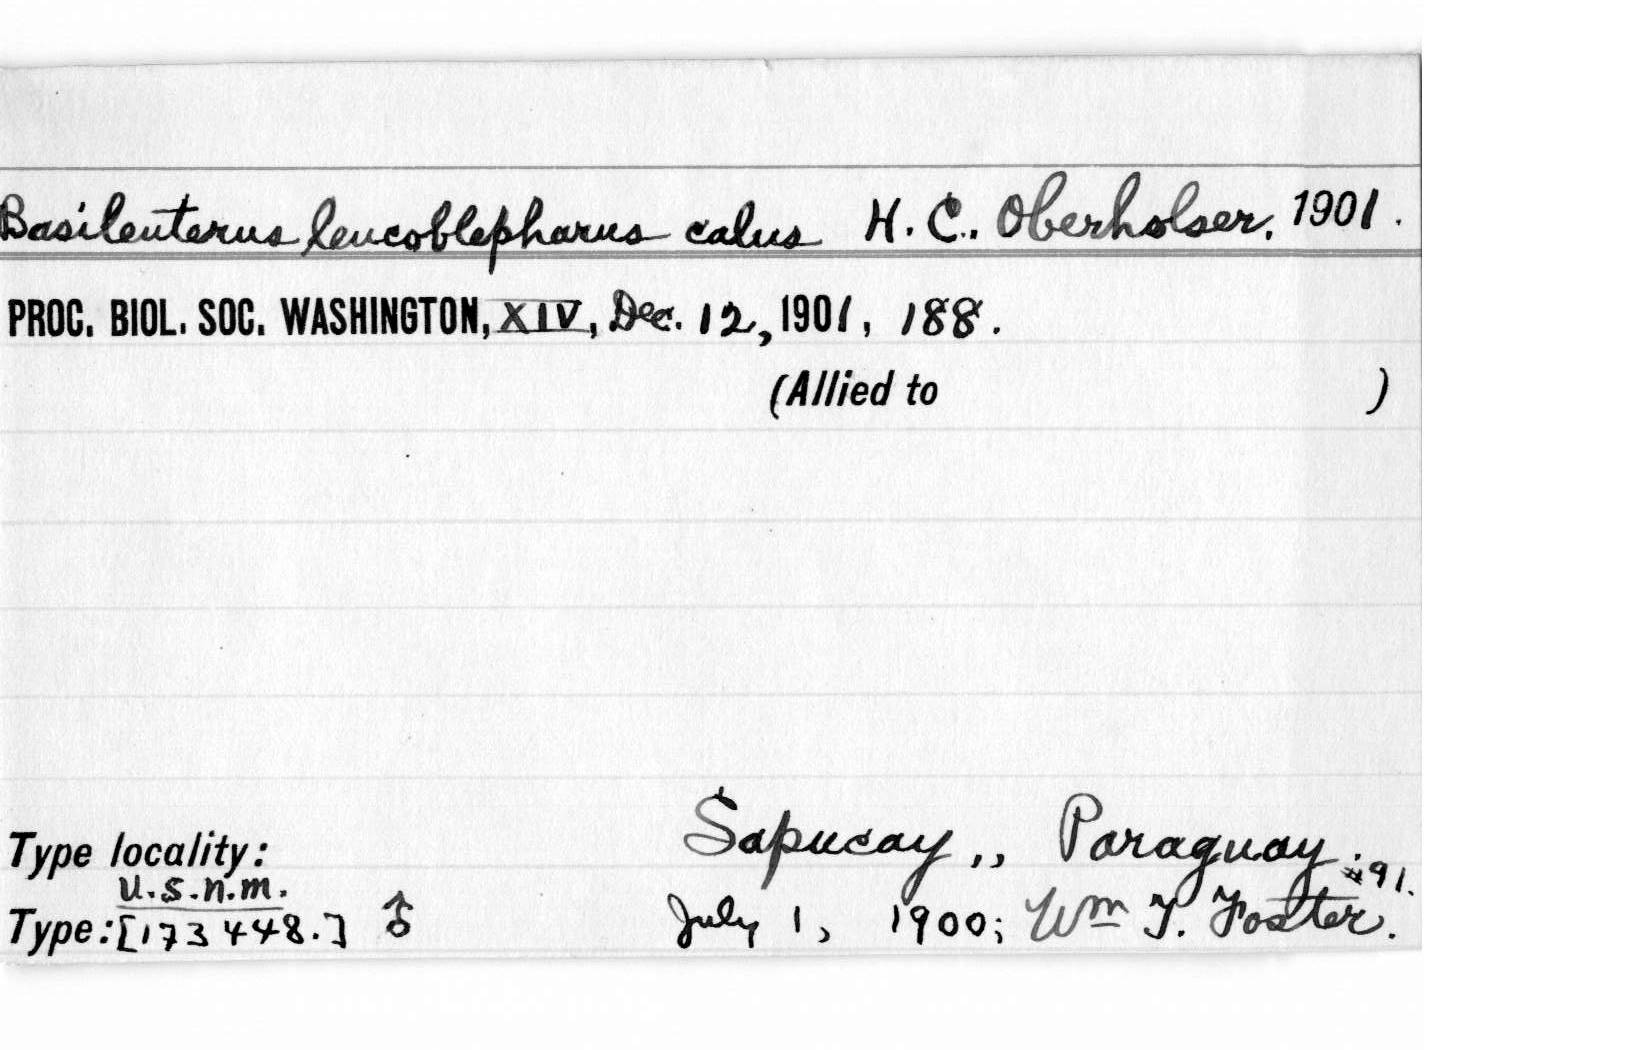 Basileuterus leucoblepharus calus H. C. Oberholser, 1901.
PROC. BIOL. SOC. WASHINGTON, XIV, Dec. 12, 1901, 188.
(Allied to )
Type locality: Sapucay,, Paraguay.
U.S.N.M. #91.
Type: [173448.] ♂ July 1, 1900; Wm T. Foster.